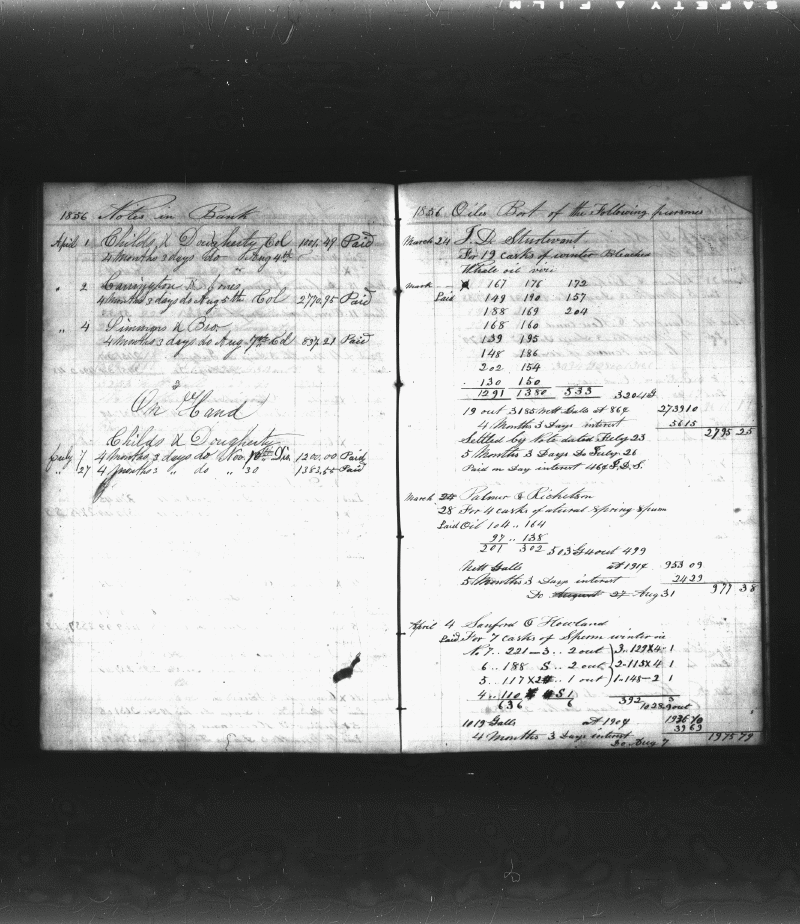 1856 Notes in Bank
April 1 Childs & Dougherty Col 1001.49 Paid
4 Months 3 days do Aug 4th
" 2 Carrington & Jones
4 Months 3 days do Aug 5th Col 2770.95 Paid
" 4 Simmons & Bro
4 months 3 days do Aug 7th Col 837.21 Paid
On Hand
Childs & Dougherty
July 7 4 months, 3 days do Nov. 10th Dis 1200.00 Paid
" 27 4 months 3 " do " 30 1382.55 Paid
1856 Oiles Bort of the Following persones
March 24 T. D. Sturtevant
For 19 casks of winter Bleaches
Whale oil
Mark 167 176 172
Paid 149 190 157
188 169 204
168 160
139 195
148 186
202 154
130 150
1291 1380 533 3204 G
19 out 3185 Nett Galls at 86¢ 2739 10
4 Months 3 Days interest 56 15
2795 25
Settled by Note dated July 23
5 Months 3 Days Do July. 26
Paid on Day interest 46¢ T.D.S.
March 24 Palmer & Richelson
28 For 4 casks of natural Spring Spum
Paid Oil 104 .. 164
97 .. 138
201 302 503 G 4 out 499
Nett Galls at 191¢ 953 09
5 Months 3 Days interest 24 29
Do August 27 Aug 31 977 38
April 4 Sanford & Howland
Paid For 7 casks of Sperm winter
No 7 .. 221 — 3 .. 2 out 3 .. 129 X 4 - 1
6 .. 188 S .. 2 out 2 - 115 X 4 1
5 .. 117 X 2 .. 1 out 1 - 148 - 2 1
4 .. 110 S 1
636 6 392 3
1028 9 out
1019 Galls at 190¢ 1936 10
4 Months 3 Days interest 39 69
Do Aug 7 1975 79